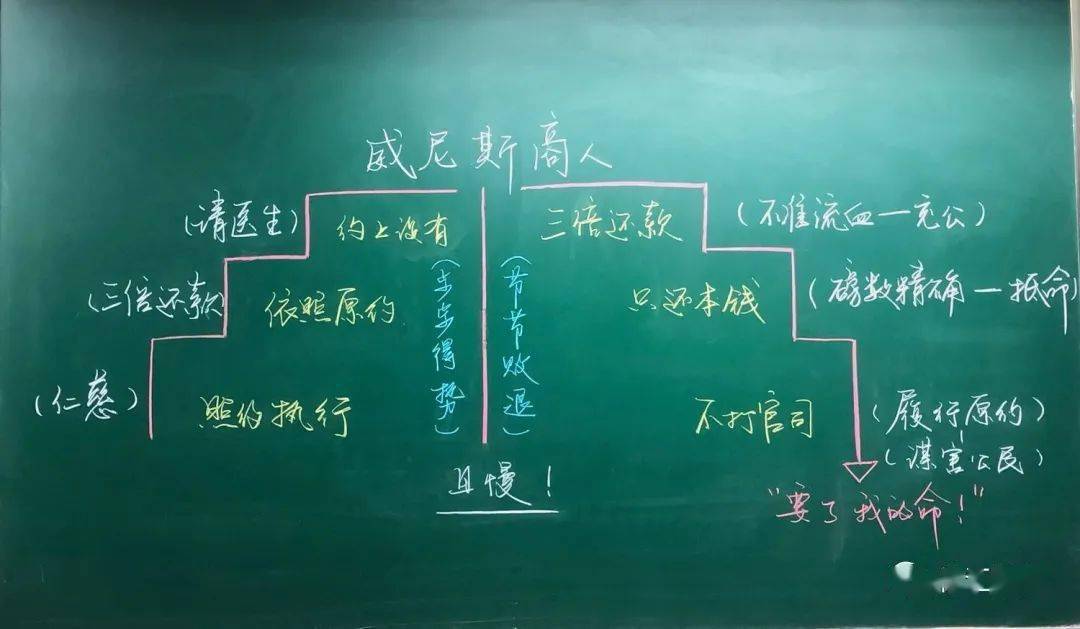 威尼斯商人
(请医生)
约上没有
三倍还款
(不准流血一充公)
(三倍还款)
依照原约
(步步得势)
(节节败退)
只还本钱
(磅数精确一抵命)
(仁慈)
照约执行
不打官司
(履行原约)
(谋害公民)
且慢!
"要了我的命!"